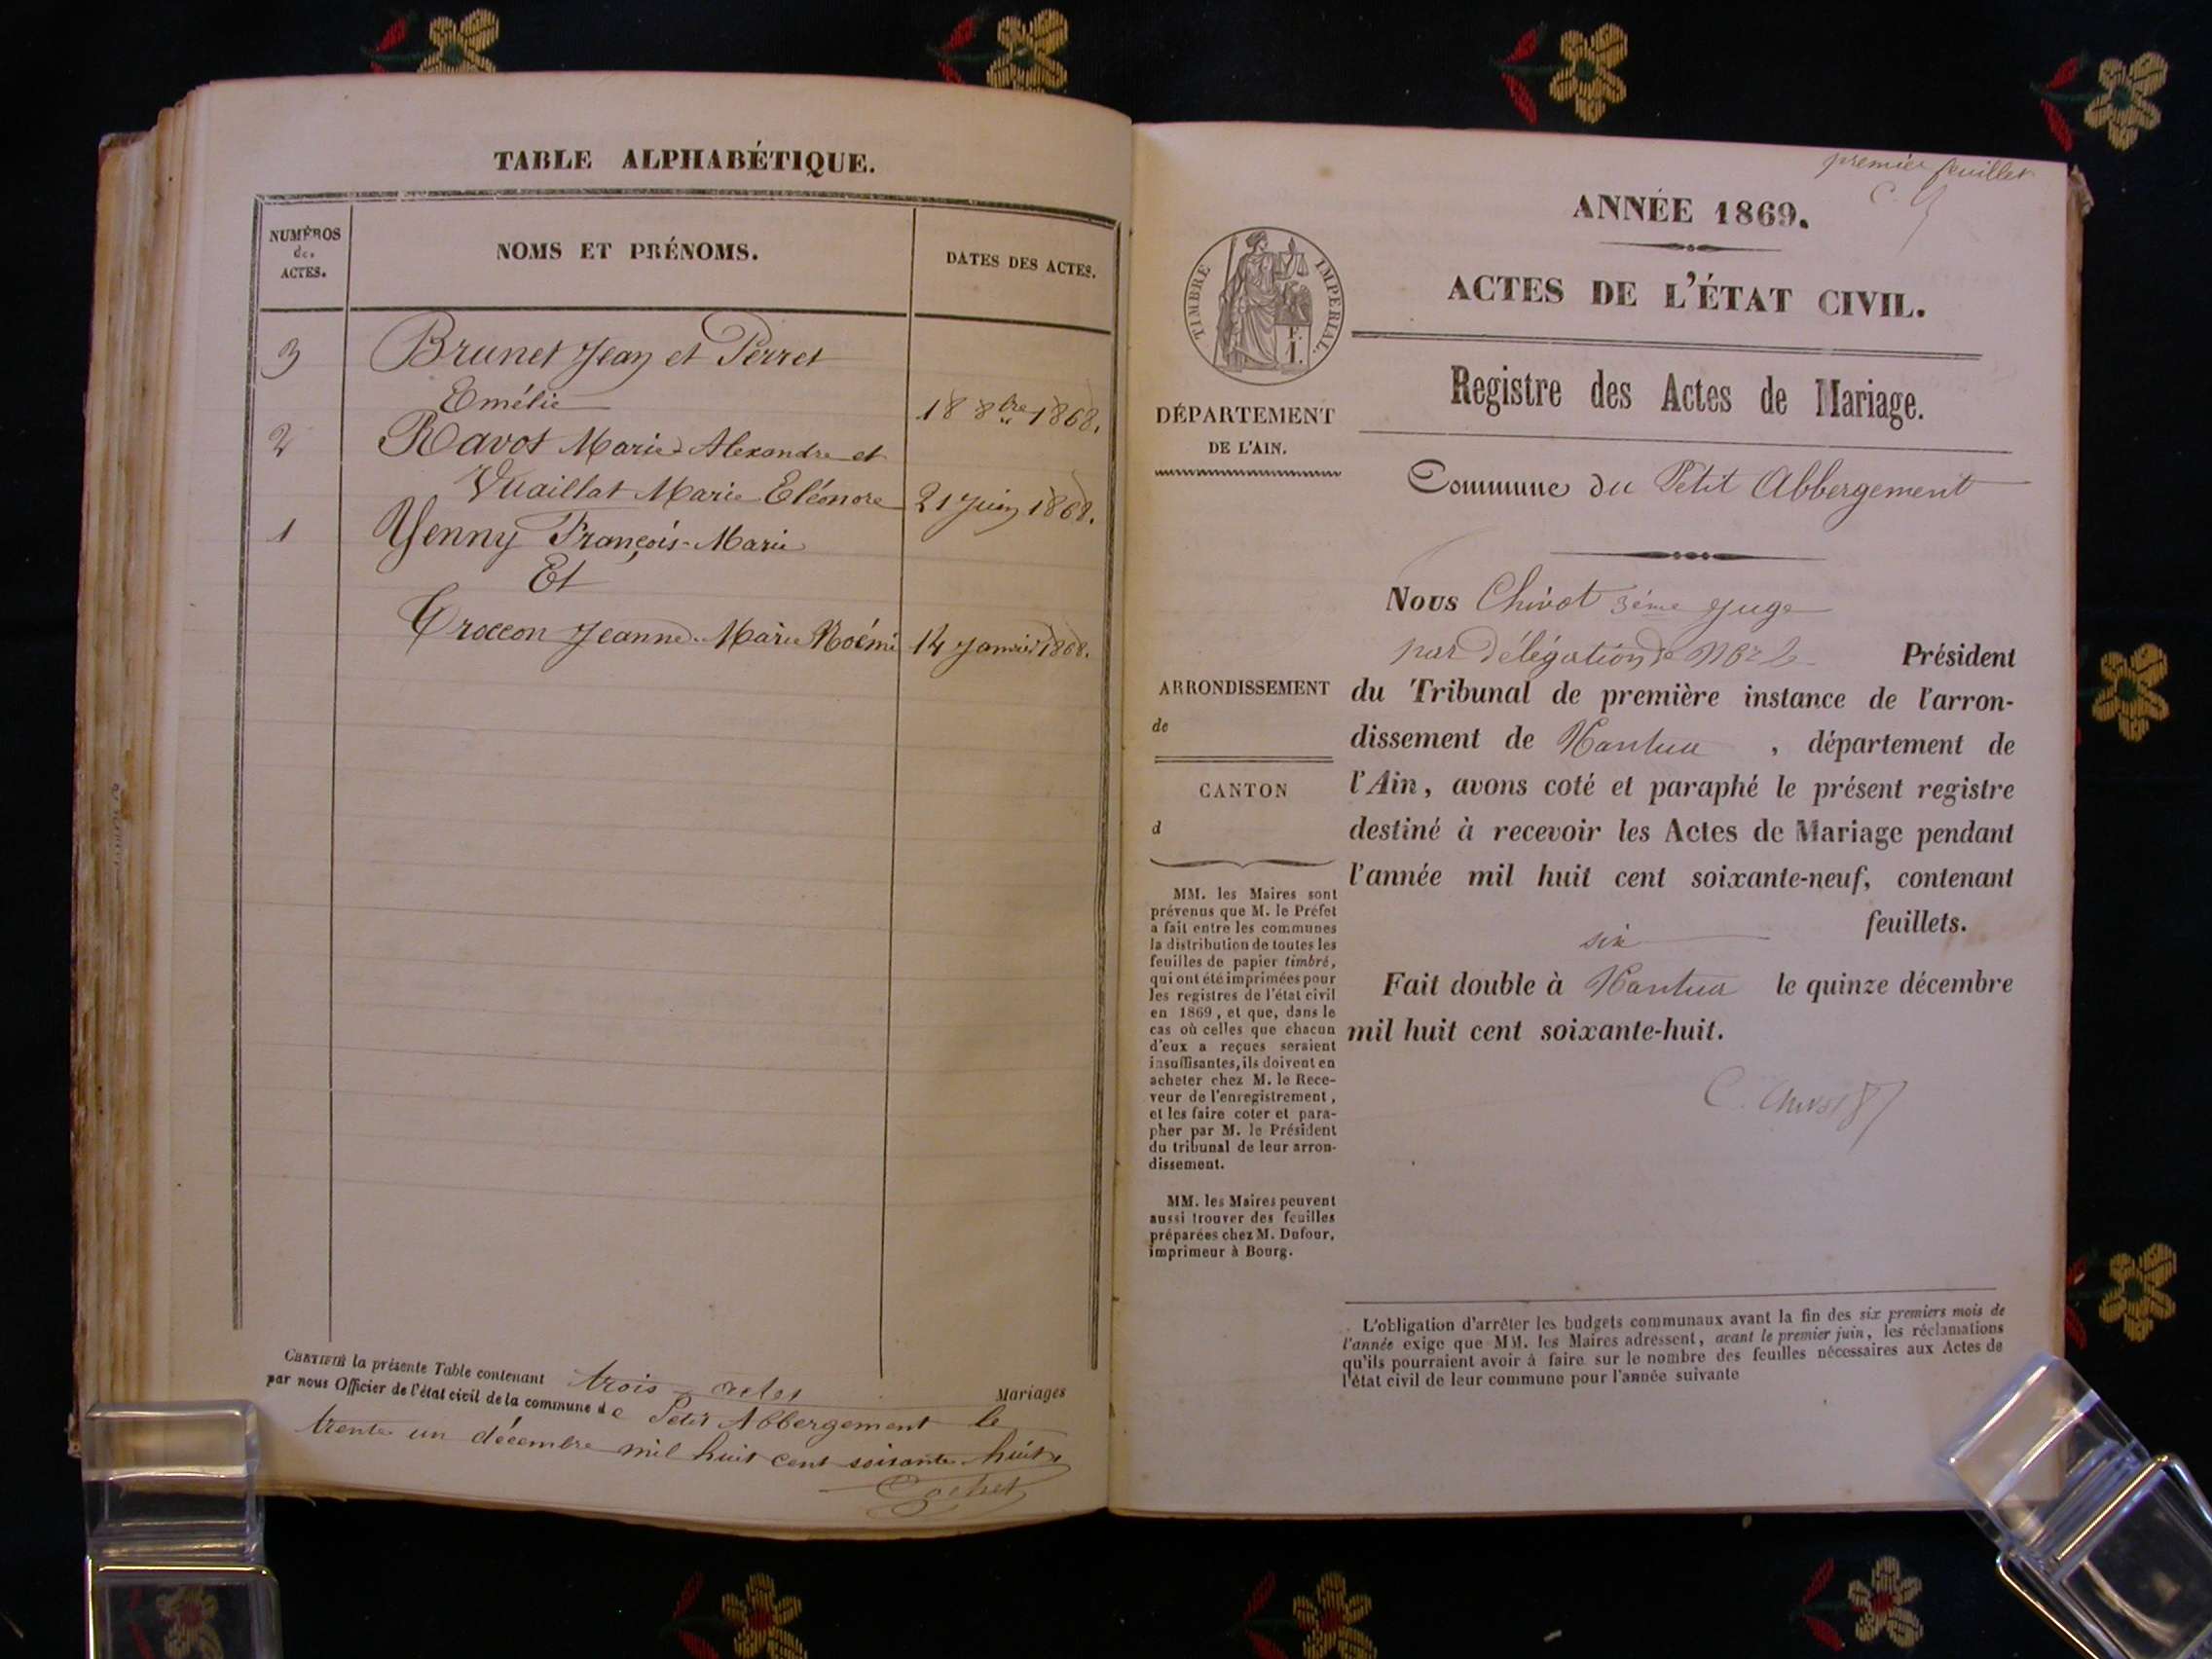 TABLE ALPHABÉTIQUE.
NUMÉROS
des
ACTES.
NOMS ET PRÉNOMS.
DATES DES ACTES.
3 Brunet Jean et Perret
Emélie 18 8bre 1868.
2 Ravot Marie Alexandre et
Vuaillat Marie Eléonore 21 Juin 1868.
1 Yenny François-Marie
Et
Croccon Jeanne-Marie Noémi 14 Janvier 1868.
CERTIFIÉ la présente Table contenant trois actes Mariages
par nous Officier de l'état civil de la commune de Petit Abbergement le
trente un décembre mil huit cent soixante huit
Cochet
premier feuillet
ANNÉE 1869.
TIMBRE IMPÉRIAL.
ACTES DE L'ÉTAT CIVIL.
Registre des Actes de Mariage.
DÉPARTEMENT
DE L'AIN.
Commune du Petit Abbergement
Nous Chivot 3ème Juge
par délégation de Mr le Président
du Tribunal de première instance de l'arron-
dissement de Nantua , département de
l'Ain, avons coté et paraphé le présent registre
destiné à recevoir les Actes de Mariage pendant
l'année mil huit cent soixante-neuf, contenant
six feuillets.
Fait double à Nantua le quinze décembre
mil huit cent soixante-huit.
C. Chivot
ARRONDISSEMENT
de
CANTON
d
MM. les Maires sont
prévenus que M. le Préfet
a fait entre les communes
la distribution de toutes les
feuilles de papier timbré,
qui ont été imprimées pour
les registres de l'état civil
en 1869, et que, dans le
cas où celles que chacun
d'eux a reçues seraient
insuffisantes, ils doivent en
acheter chez M. le Rece-
veur de l'enregistrement,
et les faire coter et para-
pher par M. le Président
du tribunal de leur arron-
dissement.
MM. les Maires peuvent
aussi trouver des feuilles
préparées chez M. Dufour,
imprimeur à Bourg.
L'obligation d'arrêter les budgets communaux avant la fin des six premiers mois de
l'année exige que MM. les Maires adressent, avant le premier juin, les réclamations
qu'ils pourraient avoir à faire sur le nombre des feuilles nécessaires aux Actes de
l'état civil de leur commune pour l'année suivante